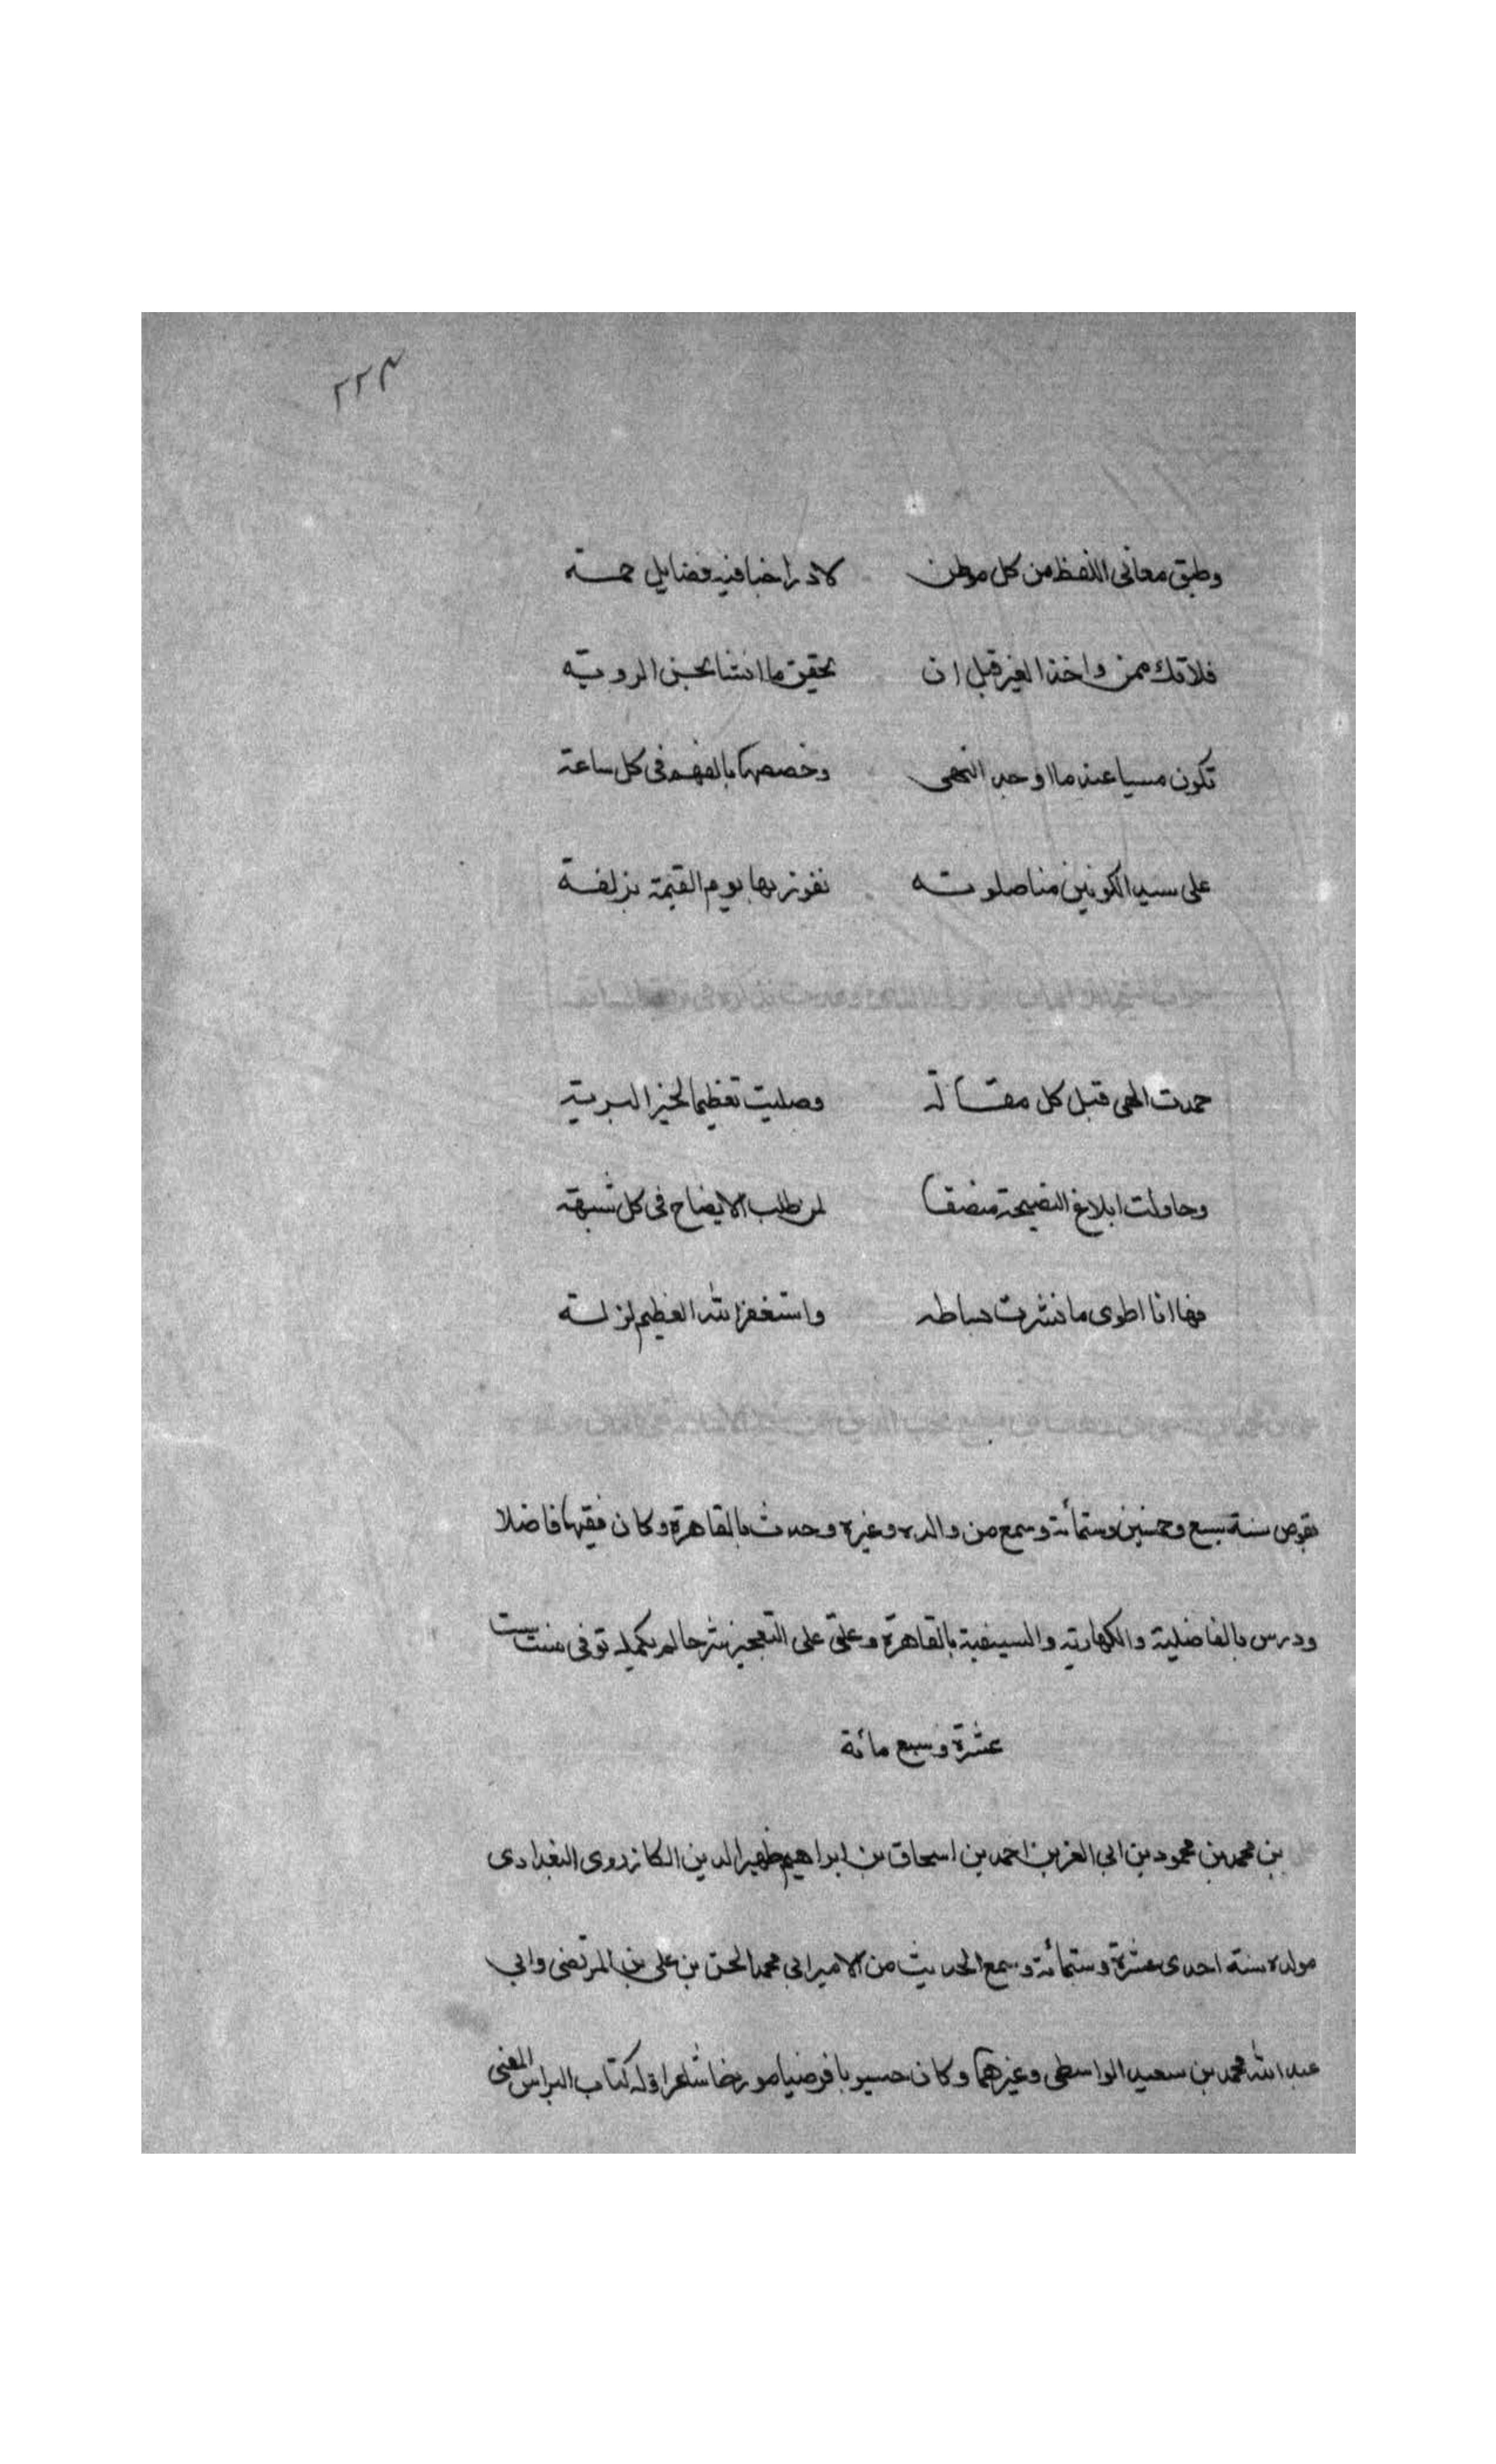 ٢٢٣
وطبق معانى اللفظ من كل موطن لا دراخبا فيه فضايل جمة
فلا تك ممن واخذ الغير قبل ان تحقيق ما انشا بحسن الروية
تكون مسيا عند ما اوحد النهى وخصصها بالفهم فى كل ساعة
على سيد الكونين منا صلوته نفوز بها يوم القيمة بزلفة
حمدت الهى قبل كل مقالة وصليت تعظيما لخير البرية
وحاولت ابلاغ النصيحة منصفا لمن طلب الايضاح فى كل شبهة
فها انا اطوى ما نشرت بساطه واستغفر الله العظيم لزلة
بقوص سنة سبع وخمسين وستمائة وسمع من والده وغيره وحدث بالقاهرة وكان فقيها فاضلا
ودرس بالفاضلية والكهارية والسيفية بالقاهرة وعلق على التعجيز شرحا لم يكمله توفى سنت ست
عشرة وسبع مائة
بن محمد بن محمود بن ابى العز بن احمد بن اسحاق بن ابراهيم ظهير الدين الكازروى البغدادى
مولده سنة احدى عشرة وستمائة وسمع الحديث من الامير ابى محمد الحسن بن على بن المرتضى وابى
عبد الله محمد بن سعيد الواسطى وغيرهما وكان حسيوبا فرضيا مورخا شاعرا وله كتاب النبراس المضى